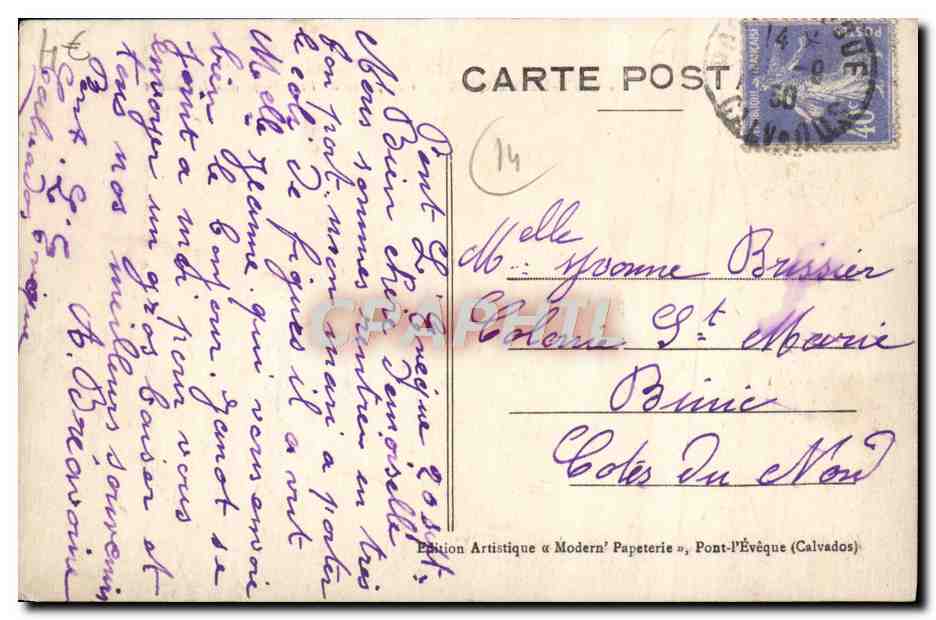 CARTE POST
14
Pont L'Eveque 20 sept
Bien chere demoiselle
Nous sommes rentres en tres
bon port. mon mari a porter
le colis de figues il a vut
Melle Jeanne qui vous envoie
bien le bonjour. Janot se
joint a moi pour vous
envoyer un gros baiser et
tous nos meilleurs souvenirs
A. Breavoine
Pont L'E
Calvados
Melle Yvonne Brissier
Colonie St Marie
Binic
Cotes du Nord
CRAPHIL
Edition Artistique « Modern' Papeterie », Pont-l'Évêque (Calvados)
14
30
CALVADOS
POSTES
40c